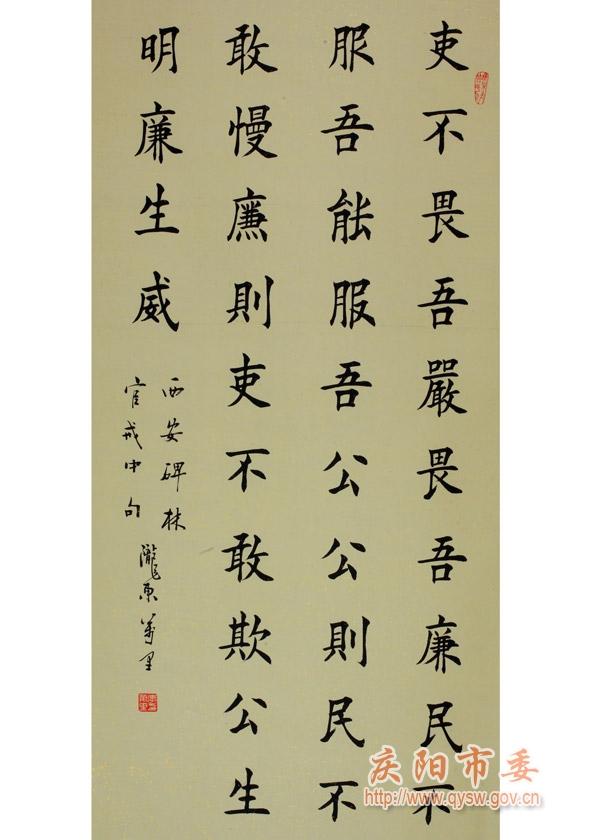 吏不畏吾嚴畏吾廉民不
服吾能服吾公公則民不
敢慢廉則吏不敢欺公生
明廉生威
西安碑林
官戒中句
隴东萬里
庆阳市委
http://www.qysw.gov.cn